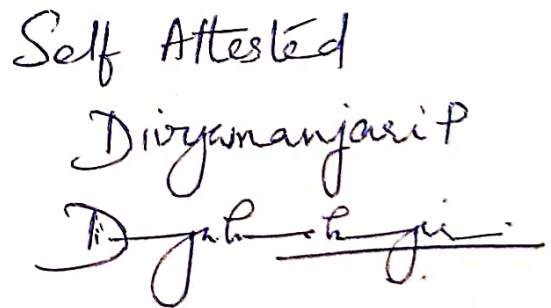 Self Attested
Divyamanjari P